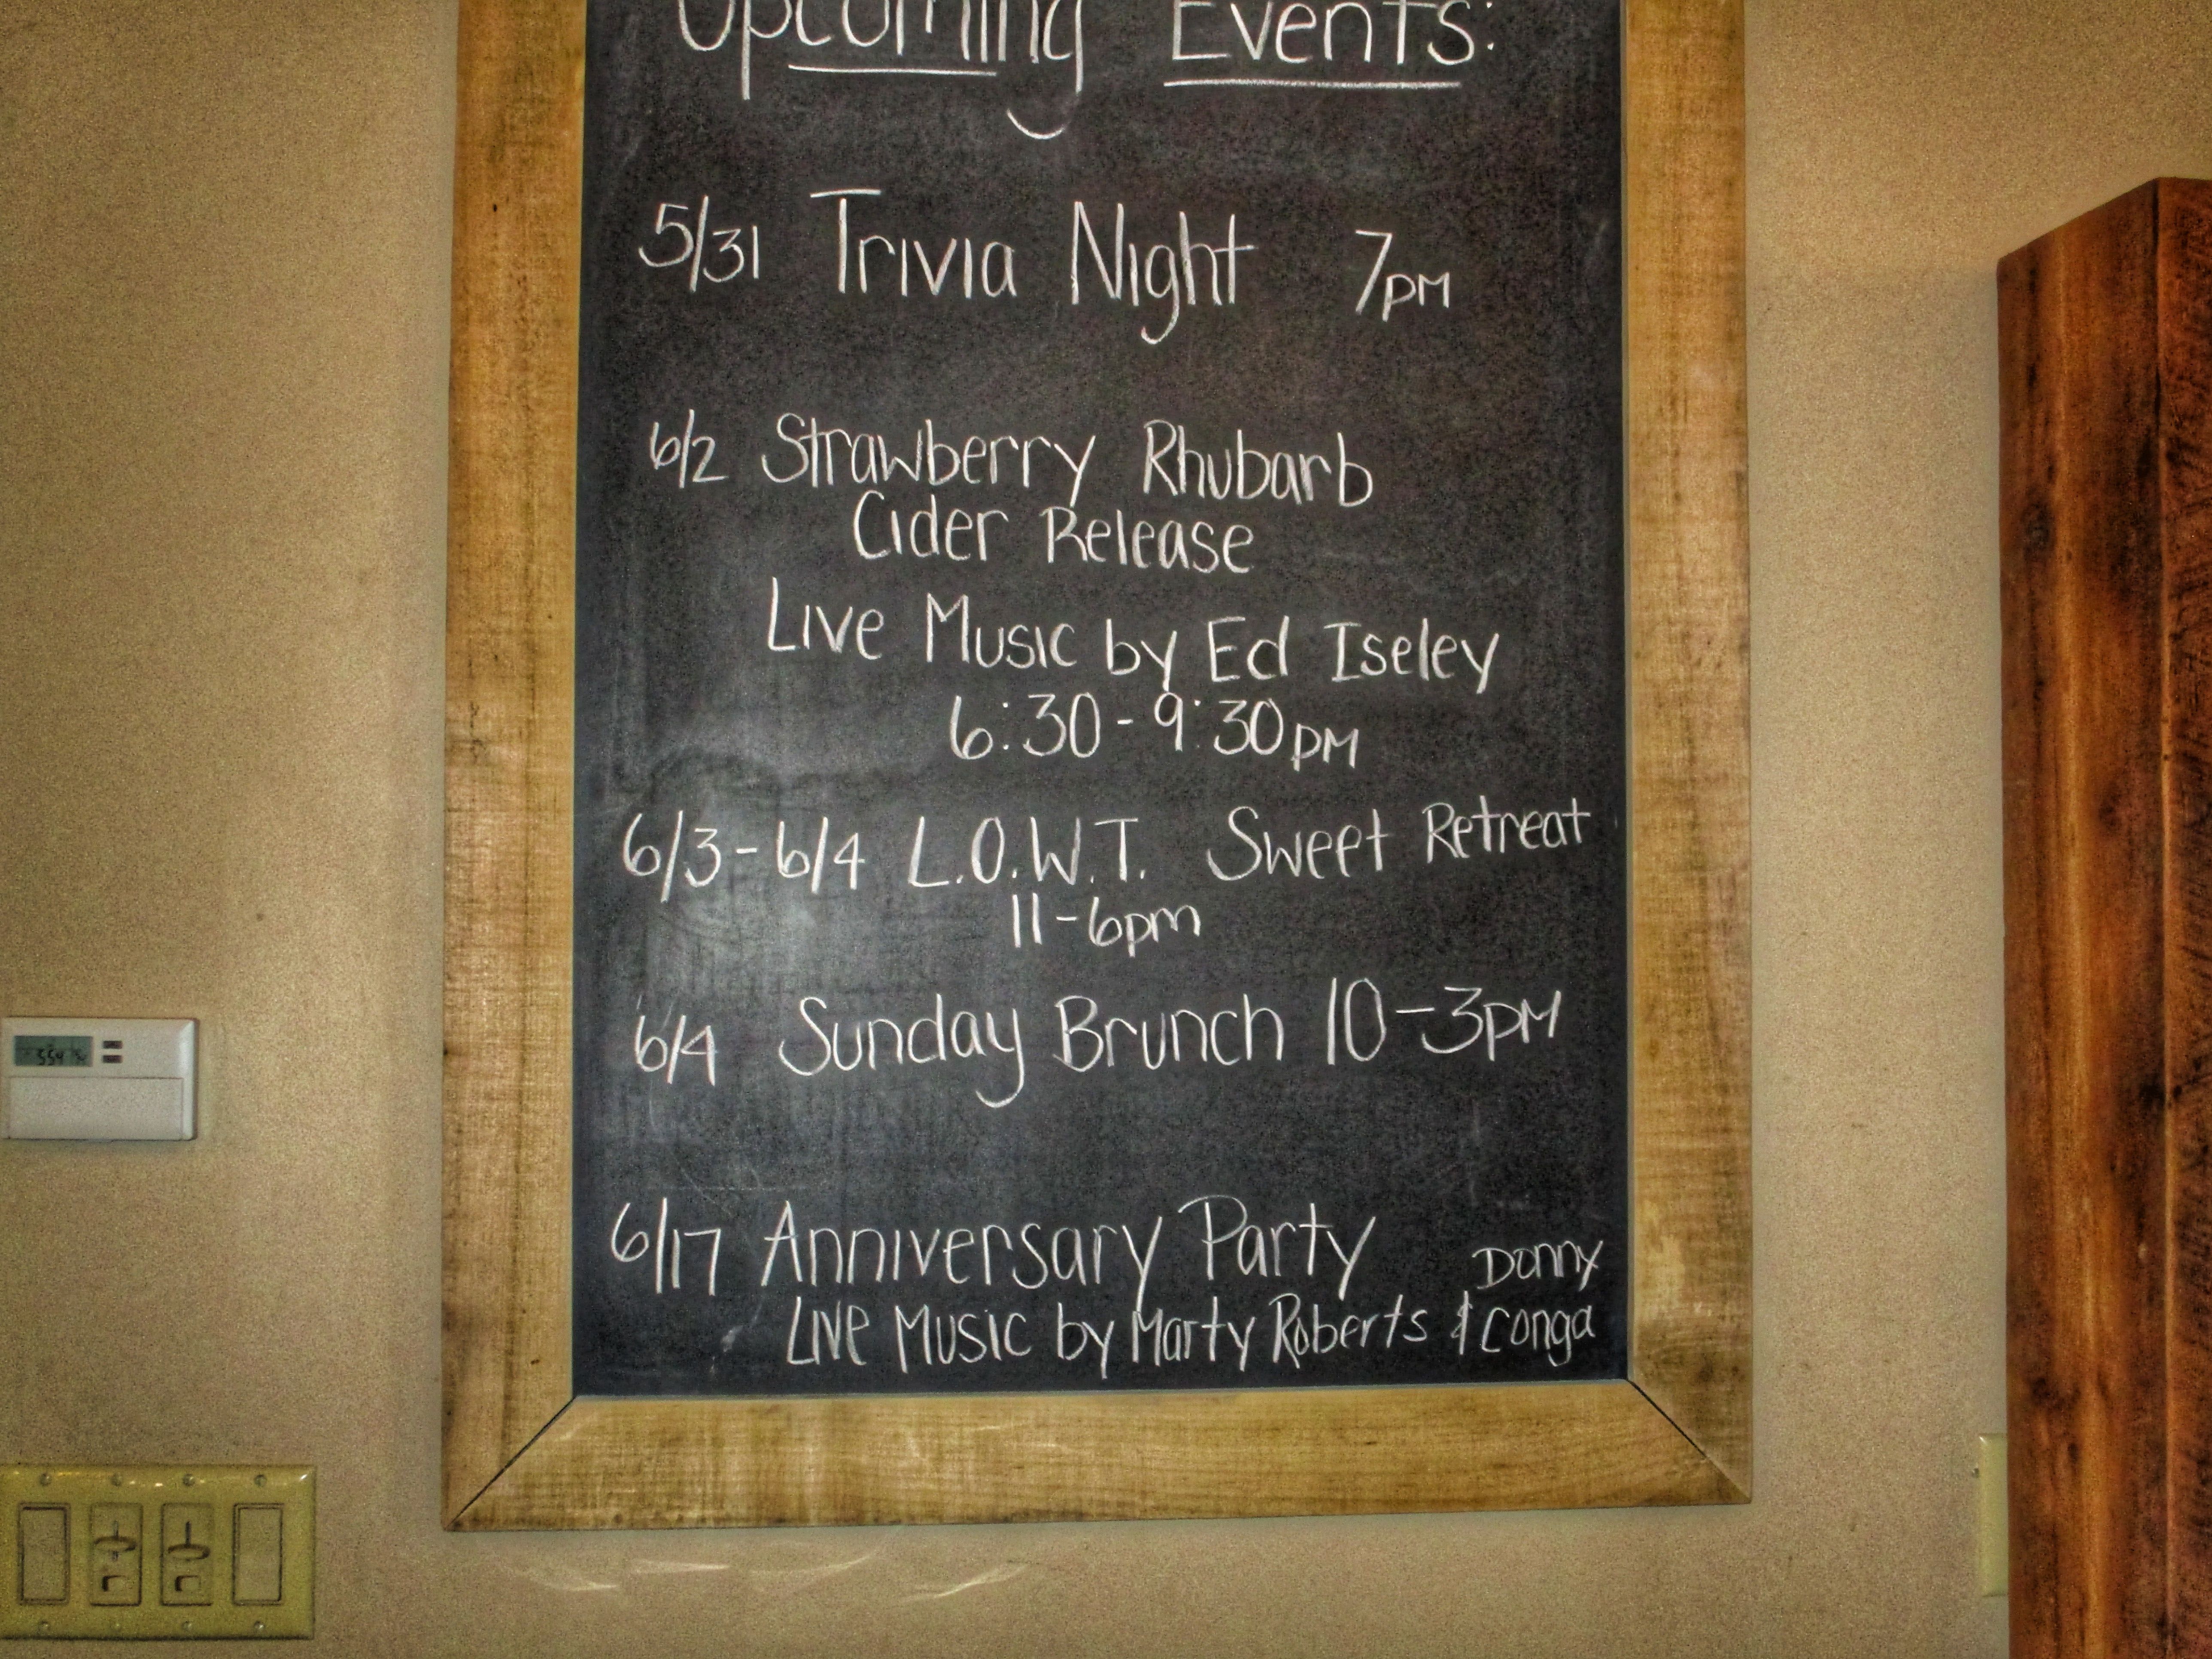 Upcoming Events:
5/31 Trivia Night 7pm
6/2 Strawberry Rhubarb
Cider Release
Live Music by Ed Iseley
6:30-9:30pm
6/3-6/4 L.O.W.T. Sweet Retreat
11-6pm
6/4 Sunday Brunch 10-3pm
6/17 Anniversary Party
Live Music by Marty Roberts & Danny Conga